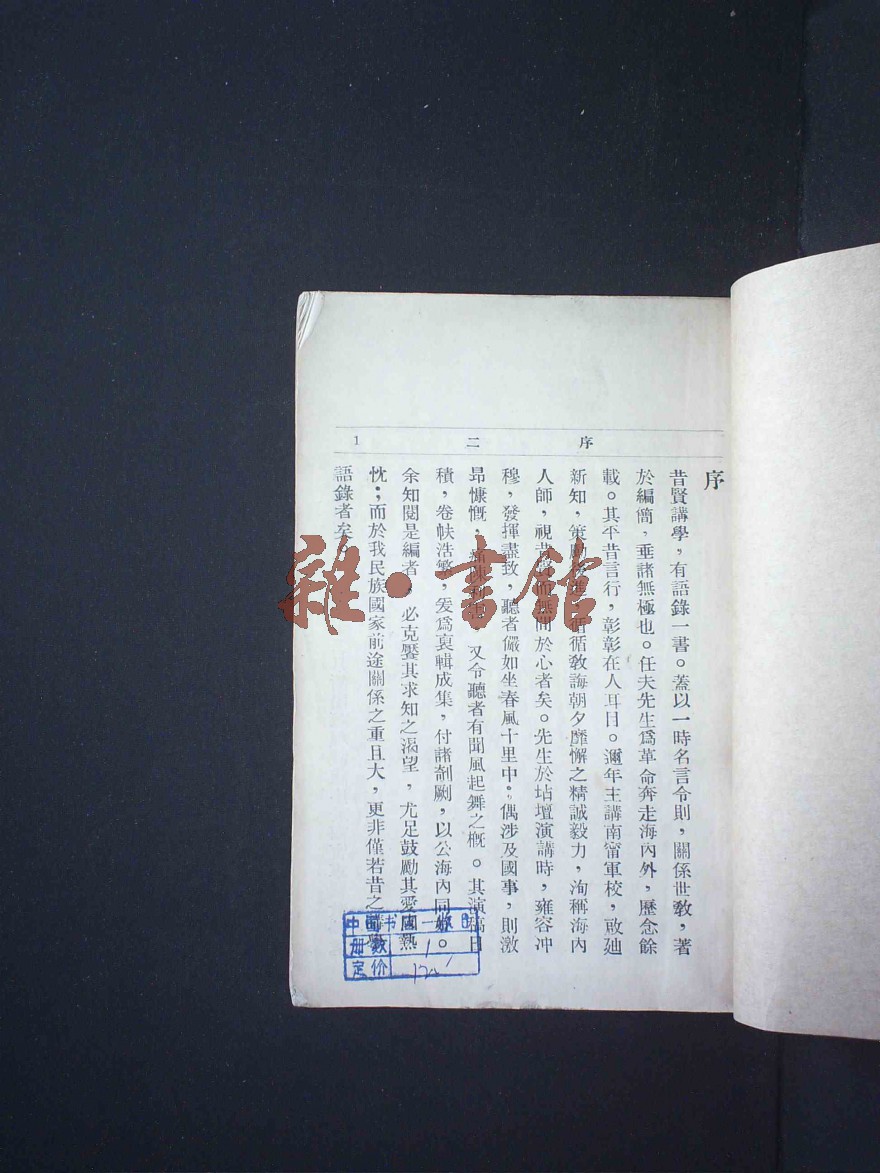 序 二 1
序
昔賢講學，有語錄一書。蓋以一時名言令則，關係世敎，著
於編簡，垂諸無極也。任夫先生爲革命奔走海內外，歷念餘
載。其平昔言行，彰彰在人耳目。邇年主講南甯軍校，啟廸
新知，策勵後進，循循敎誨朝夕靡懈之精誠毅力，洵稱海內
人師，視昔賢而無間於心者矣。先生於坫壇演講時，雍容冲
穆，發揮盡致，聽者儼如坐春風十里中。偶涉及國事，則激
昂慷慨，痛陳利害，又令聽者有聞風起舞之槪。其演稿日
積，卷帙浩繁，爰爲裒輯成集，付諸剞劂，以公海內同好。
余知閱是編者，必克饜其求知之渴望，尤足鼓勵其愛國熱
忱；而於我民族國家前途關係之重且大，更非僅若昔之講學
語錄者矣。
雜·書館
中国书
册数 1
定价